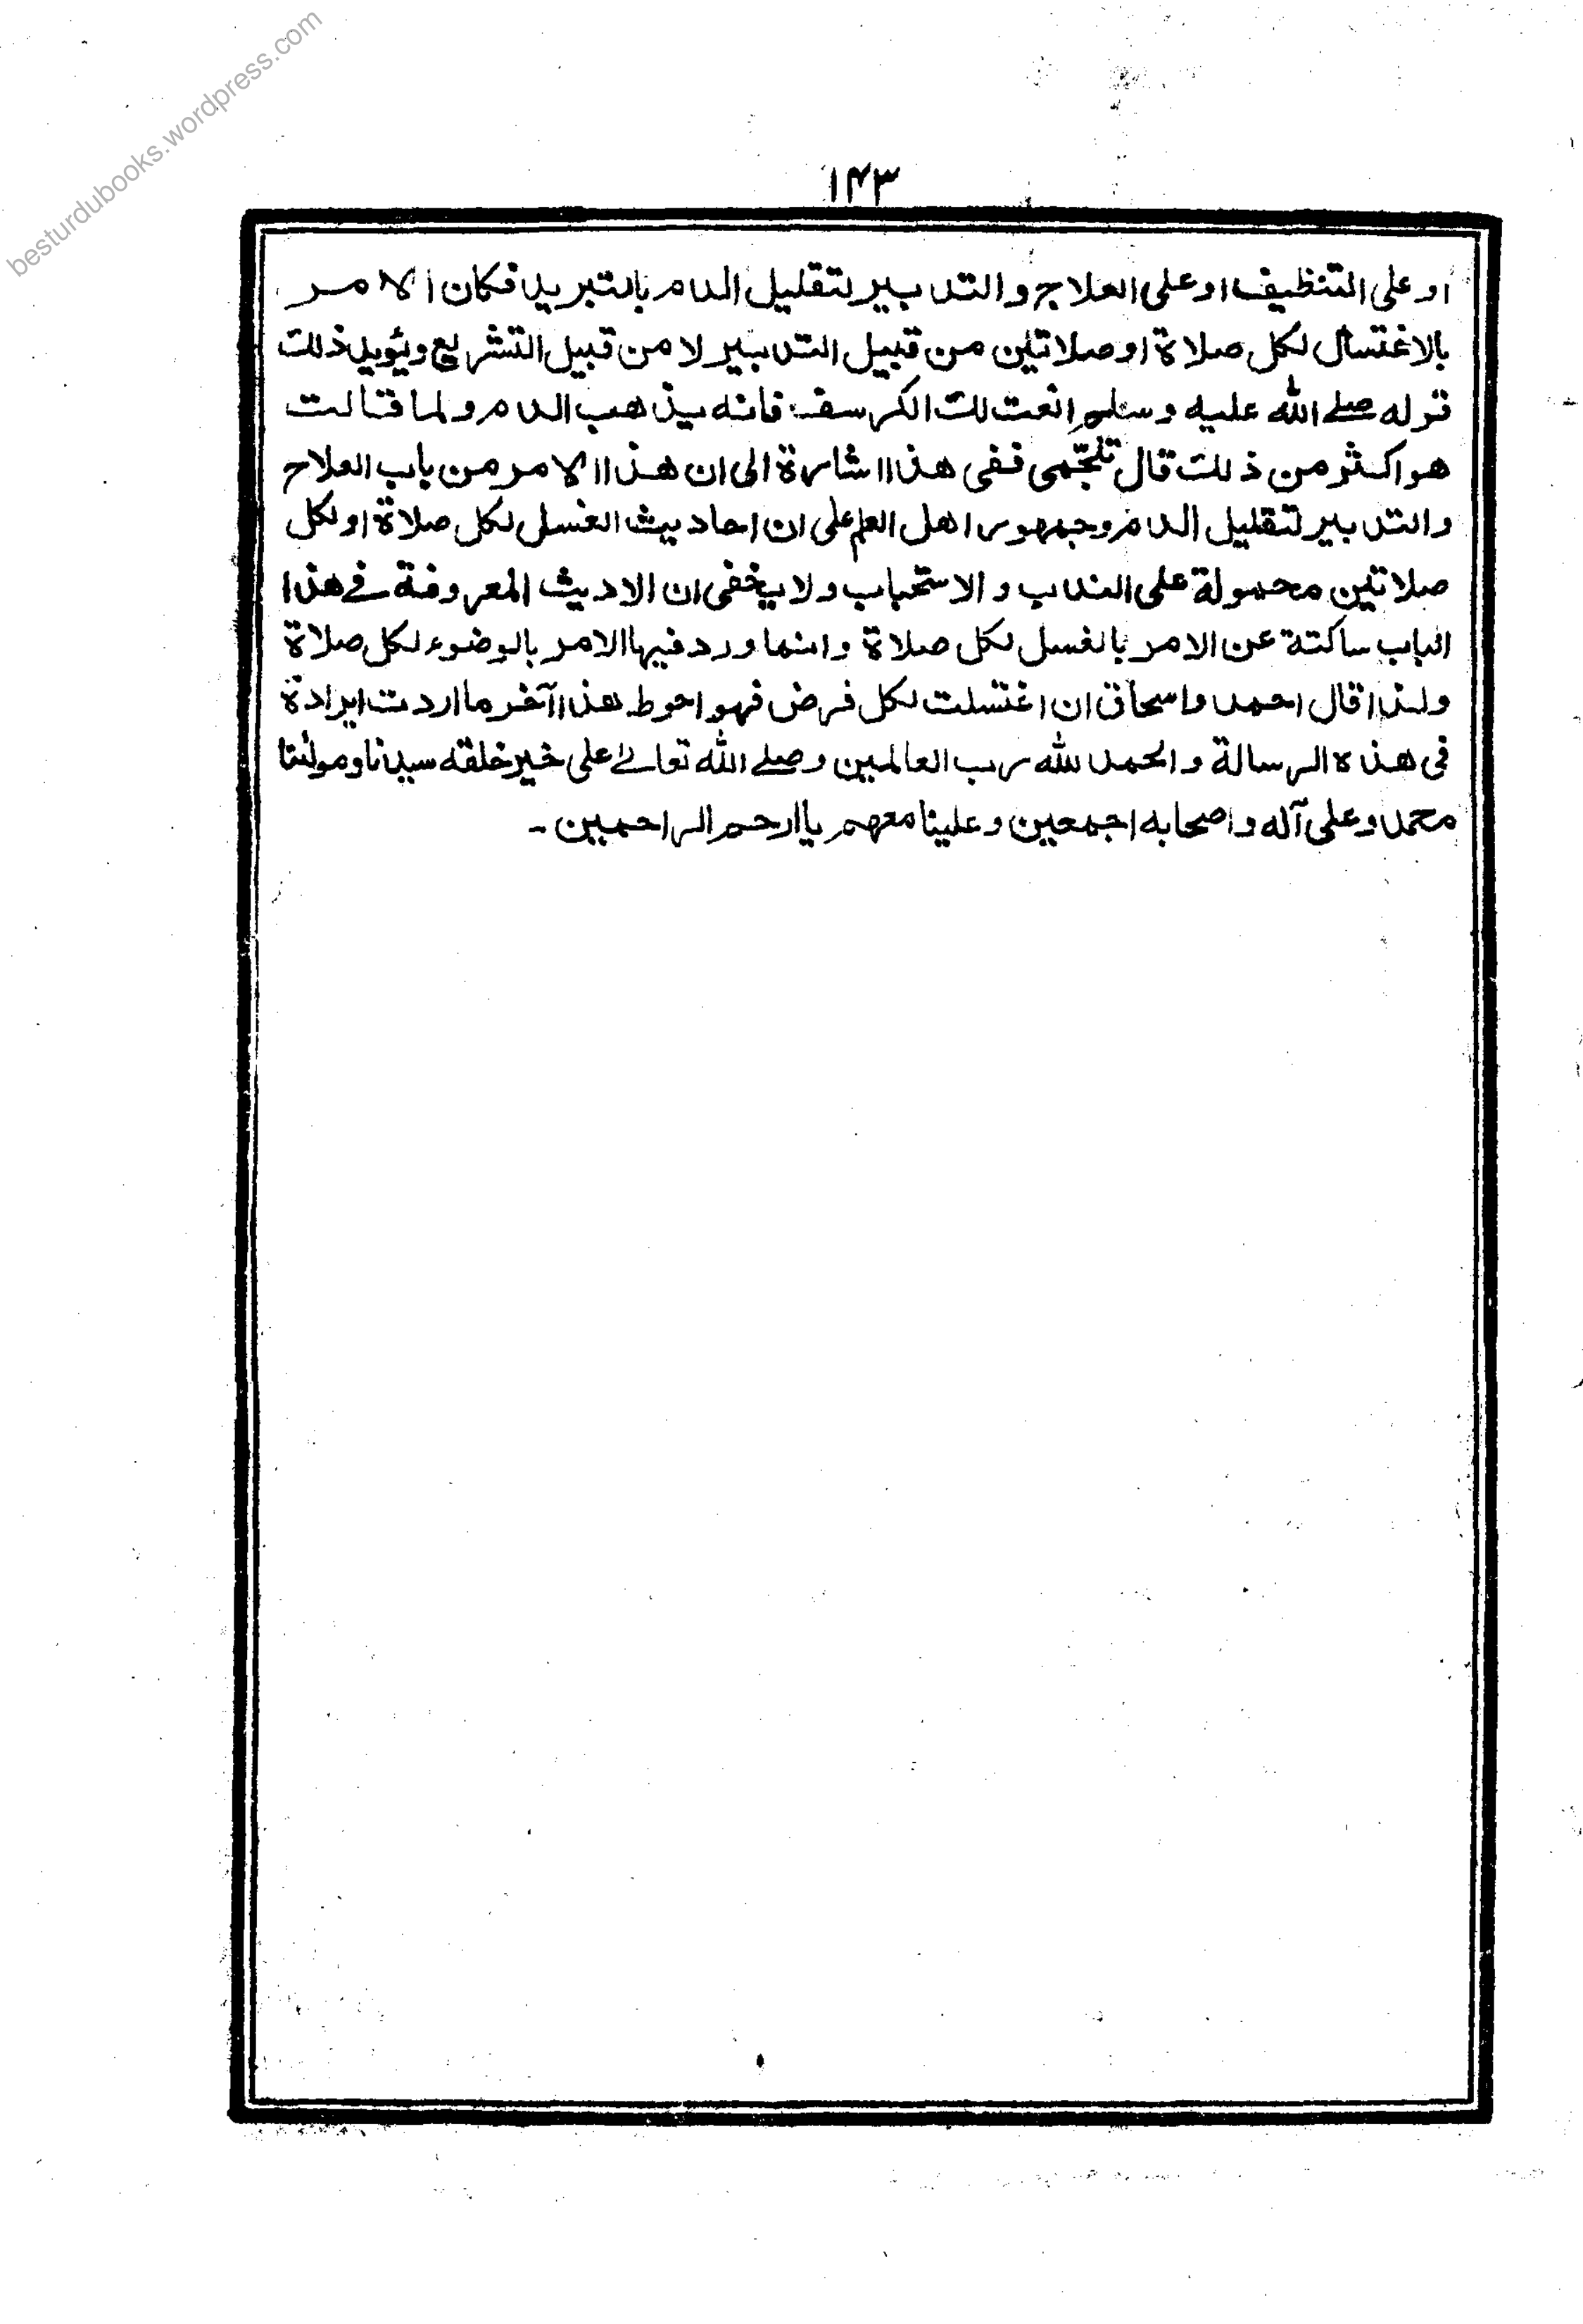 besturdubooks.wordpress.com
۱۴۳
او على التنظيف او على العلاج و التدبير لتقليل الدم بالتبريد فكان الامر
بالاغتسال لكل صلاة او صلاتين من قبيل التدبير لا من قبيل التشريع ويئويد ذلك
قوله صلے الله عليه وسلم انعت لك الكرسف فانه يذهب الدم ولما قالت
هو اكثر من ذلك قال تلجّمى ففى هذا اشارة الى ان هذا الامر من باب العلاج
والتدبير لتقليل الدم وجمهور اهل العلم على ان احاديث الغسل لكل صلاة او لكل
صلاتين محمولة على الندب و الاستحباب ولا يخفى ان الاديث المعروفة فے هذا
الباب ساكتة عن الامر بالغسل لكل صلاة وانما ورد فيها الامر بالوضوء لكل صلاة
ولذا قال احمد واسحاق ان اغتسلت لكل فرض فهو احوط هذا آخر ما اردت ايرادة
فى هذه الرسالة و الحمد لله رب العالمين وصلے الله تعالےٰ على خير خلقه سيدنا ومولٰنا
محمد وعلى آله واصحابه اجمعين وعلينا معهم يا ارحم الراحمين ـ